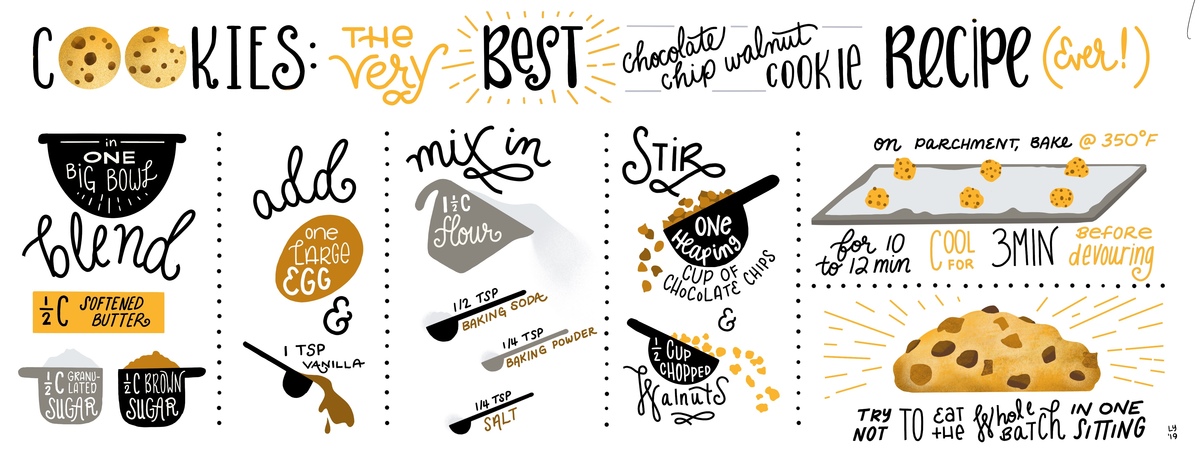 COOKIES: THE very BEST chocolate chip walnut COOKIE RECIPE (Ever!)
in
ONE
BIG BOWL
blend
1/2 C SOFTENED
BUTTER
1/2 C GRANU-
LATED
SUGAR
1/2 C BROWN
SUGAR
add
one
LARGE
EGG
&
1 TSP
VANILLA
mix in
1 1/2 C
flour
1/2 TSP
BAKING SODA
1/4 TSP
BAKING POWDER
1/4 TSP
SALT
STIR
ONE
Heaping
CUP OF
CHOCOLATE CHIPS
&
1/2 CUP
CHOPPED
Walnuts
on PARCHMENT, BAKE @ 350°F
for 10
to 12 min
COOL
FOR
3MIN
BEFORE
devouring
TRY
NOT
TO
EAT
THE
Whole
BATCH
IN ONE
SITTING
LY
'19